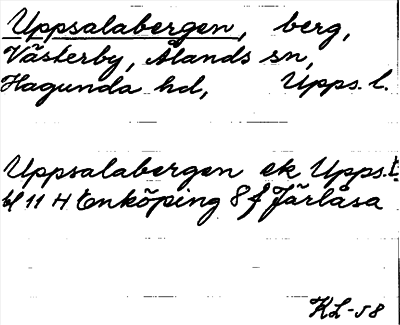 Uppsalabergen, berg,
Västerby, Ålands sn,
Hagunda hd, Upps. l.
Uppsalabergen ek Upps. l.
bl 11 H Enköping 8 f Järlåsa
KL-58